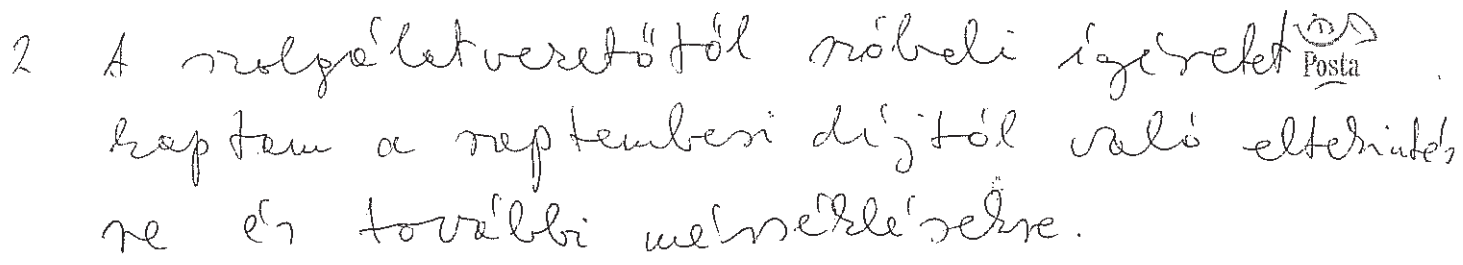 2 A szolgálatvezetőtől szóbeli ígéretet Posta
kaptam a szeptemberi díjtól való eltekintés
re és további mérséklésekre.